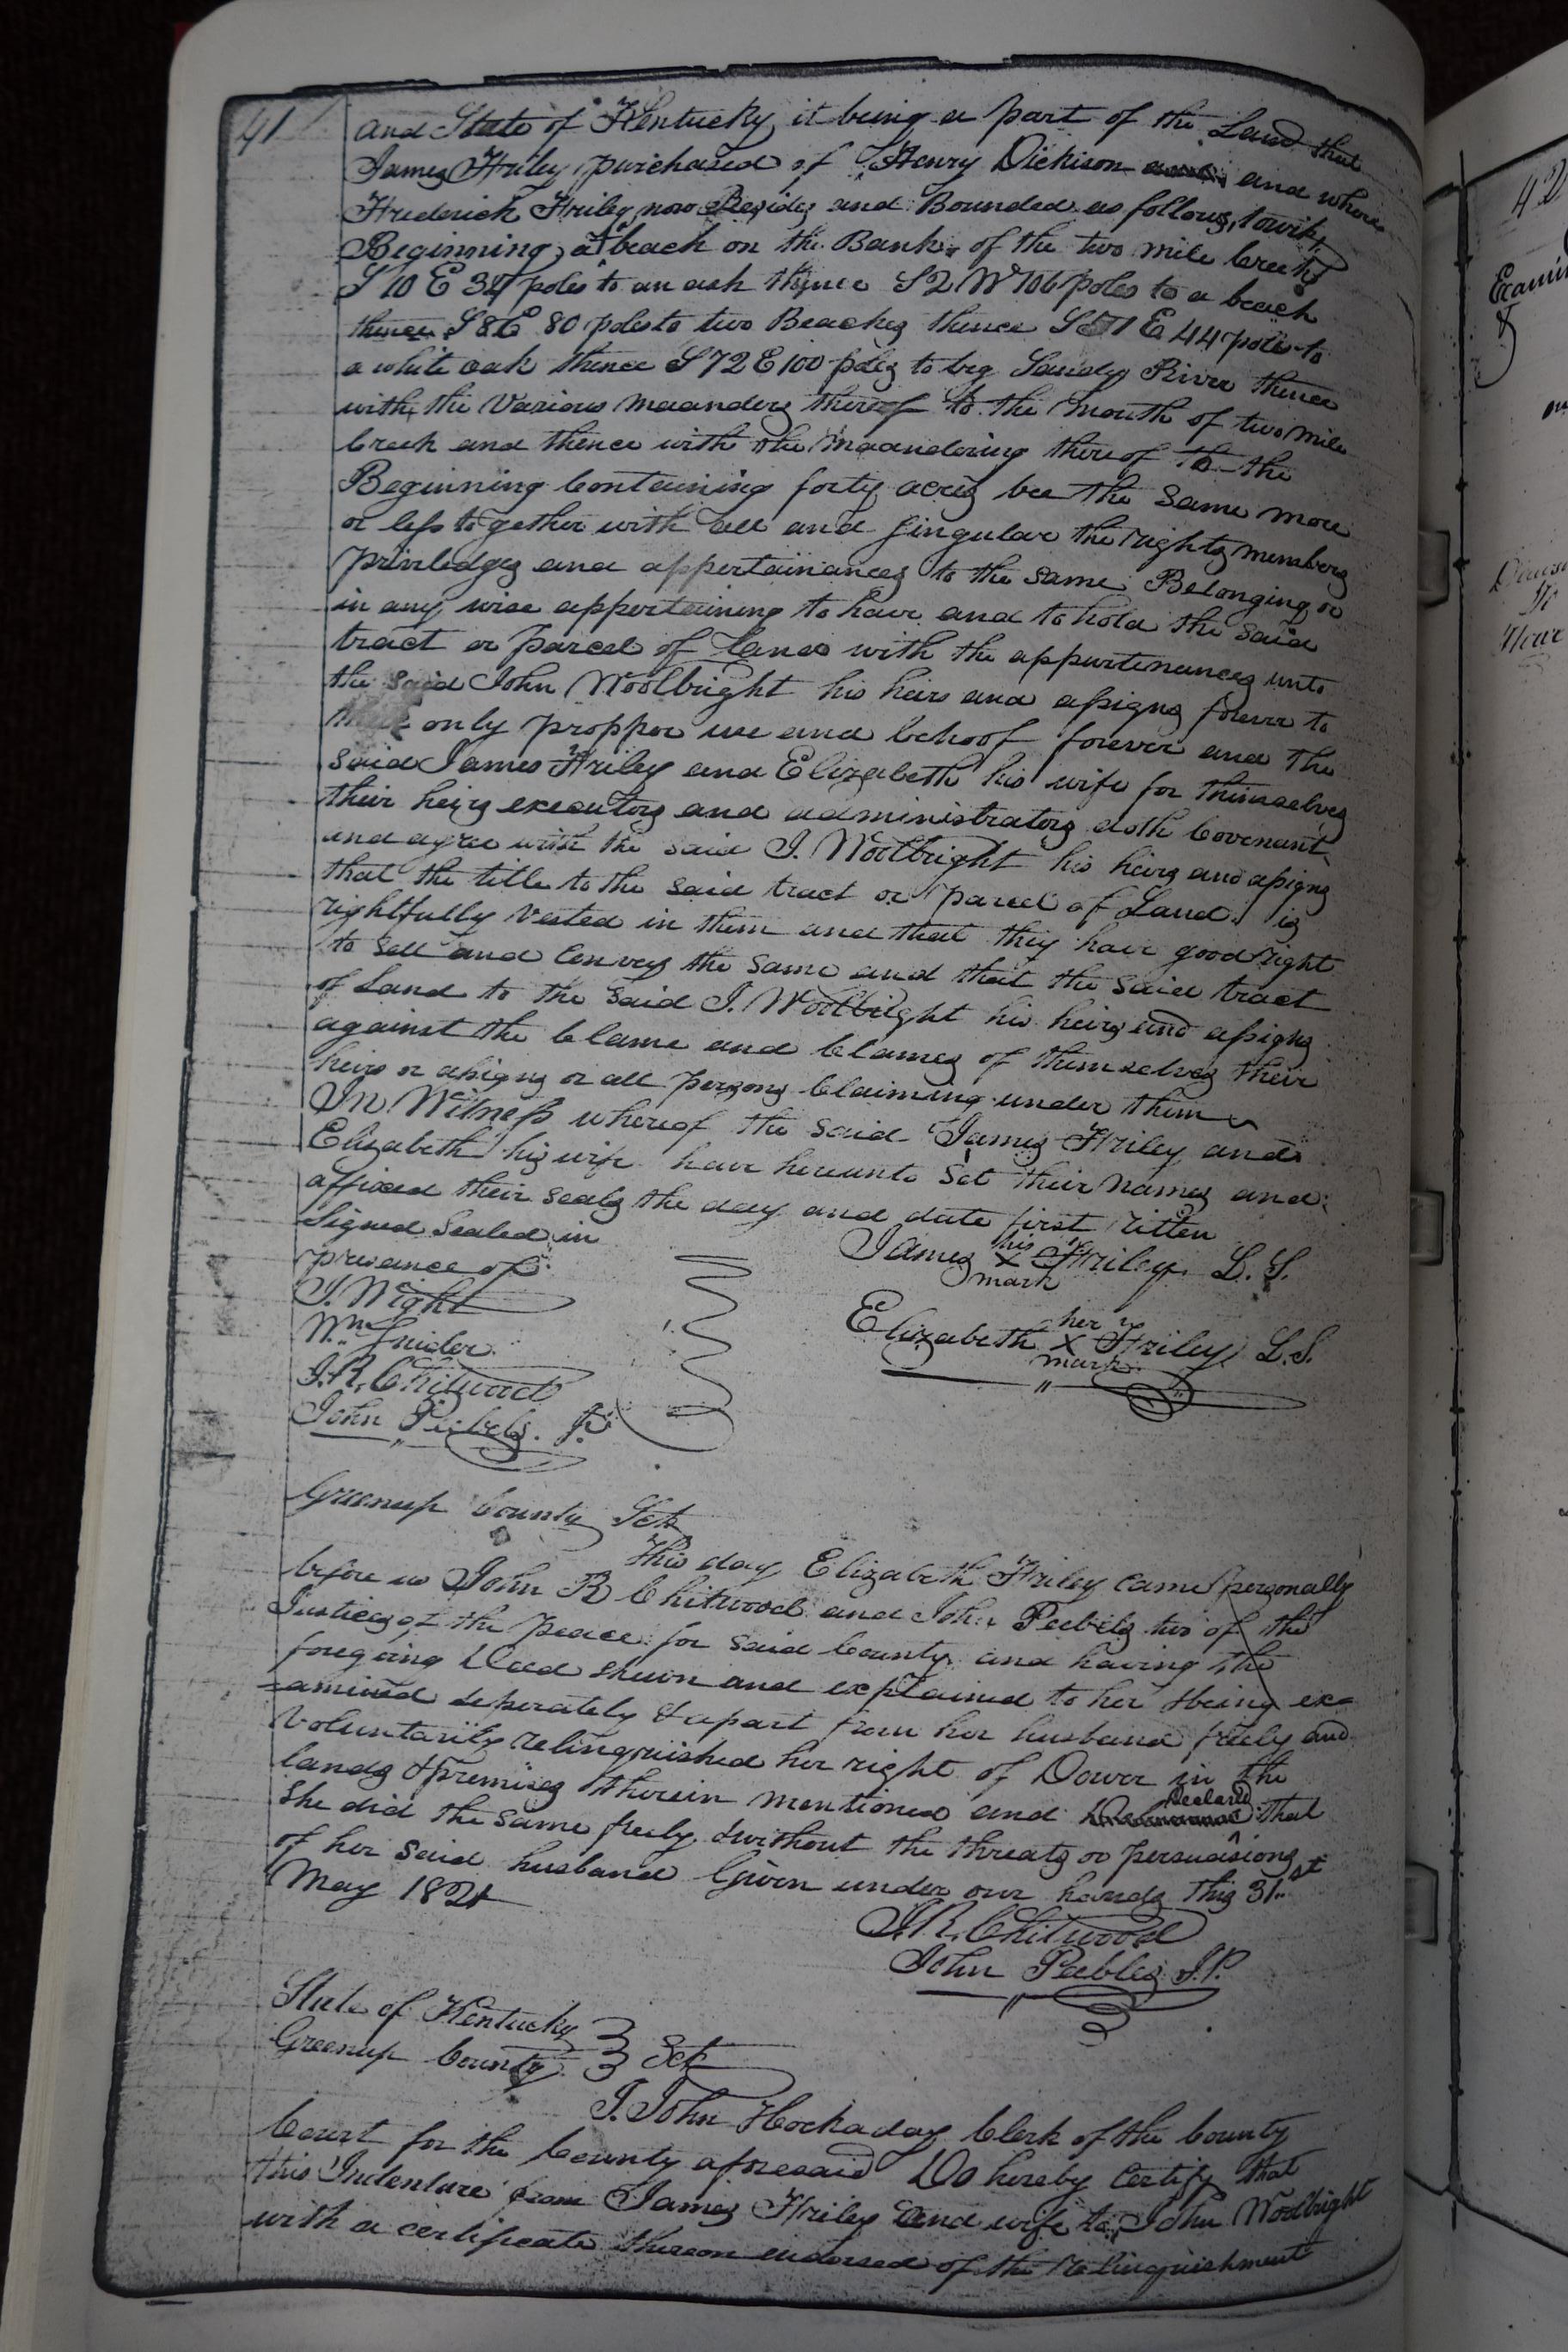 41
and State of Kentucky, it being a part of the Land that
James Friley purchased of Henry Dickison and where
Frederick Friley now Resides and Bounded as follows, towit,
Beginning, at beach on the Bank of the two mile Creek
S 10 E 34 poles to an ash thence S 2 W 106 poles to a beach
thence S 8 E 80 poles to two Beaches thence S 51 E 44 poles to
a white oak thence S 72 E 100 poles to big Sandy River thence
with the Various meanders thereof to the mouth of two mile
Creek and thence with the Maandering thereof to the
Beginning Containing forty acres bee the same more
or less together with all and singular the rights members
priviledges and appertainances to the same Belonging or
in any wise appertaining to have and to hold the said
tract or parcel of land with the appurtenances unto
the said John Woolbright his heirs and assigns forever to
only propper use and behoof forever and the
said James Friley and Elizabeth his wife for themselves
their heirs executors and administrators doth Covenant
and agree with the said J. Woolbright his heirs and assigns
that the title to the said tract or parcel of Land is
rightfully Vested in them and that they have good right
to sell and Convey the same and that the said tract
of Land to the said J. Woolbright his heirs and assigns
against the Clame and Clames of themselves their
heirs or assigns or all persons Claiming under them
In Witness whereof the said James Friley and
Elizabeth his wife have hereunto Set their names and
affixed their seals the day and date first ritten
Signed Sealed in
presance of
James his X mark Friley L. S.
J. Wight
Wm. Snider
Elizabeth her X mark Friley L. S.
J. R. Chitwood
John Peebels. Jr
Greenup County Sct
This day Elizabeth Friley came personally
before us John R Chitwood and John Peebels two of the
Justices of the peace for said County and having the
foregoing Deed shewn and explained to her & being ex=
=amined seperately & apart from her husband freely and
voluntarily relinquished her right of Dower in the
lands & premises therein mentioned and declard that
she did the same freely & without the threats or persuasions
of her said husband Given under our hands this 31st
May 1821
J. R. Chitwood
John Peebles J. P.
State of Kentucky
Greenup County Sct
I. John Hockaday Clerk of the County
Court for the County aforesaid Do hereby Certify that
this Indenture from James Friley and wife to John Woolbright
with a certificate thereon endorsed of the relinquishment
42